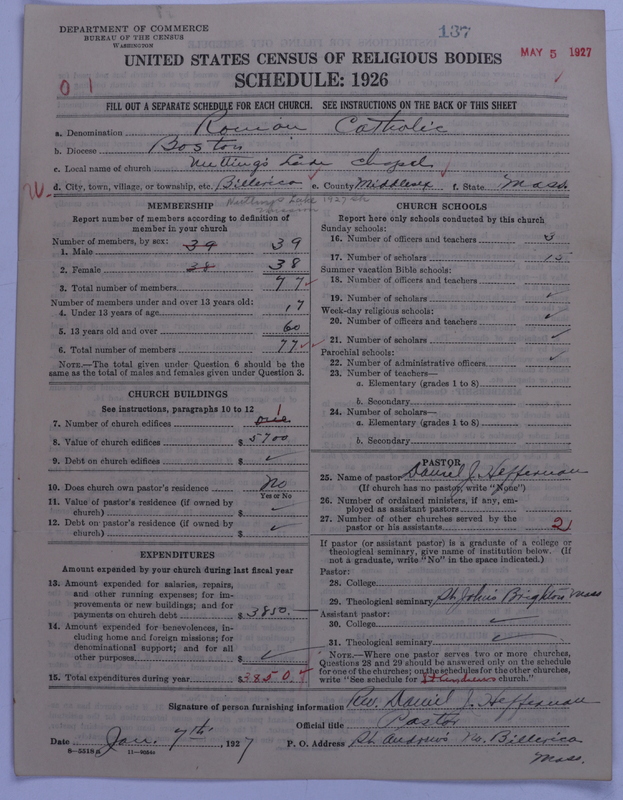 DEPARTMENT OF COMMERCE
BUREAU OF THE CENSUS
WASHINGTON
137
MAY 5 1927
UNITED STATES CENSUS OF RELIGIOUS BODIES
SCHEDULE: 1926
0 1
FILL OUT A SEPARATE SCHEDULE FOR EACH CHURCH. SEE INSTRUCTIONS ON THE BACK OF THIS SHEET
a. Denomination Roman Catholic
b. Diocese Boston
c. Local name of church Nutting's Lake Chapel
d. City, town, village, or township, etc. Billerica e. County Middlesex f. State Mass.
Nutting's Lake 1927 ch
MEMBERSHIP
Report number of members according to definition of
member in your church
Number of members, by sex:
1. Male 39 39
2. Female 38 38
3. Total number of members 77
Number of members under and over 13 years old:
4. Under 13 years of age 17
5. 13 years old and over 60
6. Total number of members 77
NOTE.—The total given under Question 6 should be
same as the total of males and females given under Question 3.
CHURCH BUILDINGS
See instructions, paragraphs 10 to 12
7. Number of church edifices one 1
8. Value of church edifices $ 5700
9. Debt on church edifices $
10. Does church own pastor's residence No
Yes or No
11. Value of pastor's residence (if owned by
church) $
12. Debt on pastor's residence (if owned by
church) $
EXPENDITURES
Amount expended by your church during last fiscal year
13. Amount expended for salaries, repairs,
and other running expenses; for im-
provements or new buildings; and for
payments on church debt $ 3850.—
14. Amount expended for benevolences, in-
cluding home and foreign missions; for
denominational support; and for all
other purposes $
15. Total expenditures during year $3850.
CHURCH SCHOOLS
Report here only schools conducted by this church
Sunday schools:
16. Number of officers and teachers 3
17. Number of scholars 15
Summer vacation Bible schools:
18. Number of officers and teachers
19. Number of scholars
Week-day religious schools:
20. Number of officers and teachers
21. Number of scholars
Parochial schools:
22. Number of administrative officers
23. Number of teachers—
a. Elementary (grades 1 to 8)
b. Secondary
24. Number of scholars—
a. Elementary (grades 1 to 8)
b. Secondary
PASTOR
25. Name of pastor Daniel J. Heffernan
(If church has no pastor, write "None")
26. Number of ordained ministers, if any, em-
ployed as assistant pastors
27. Number of other churches served by the
pastor or his assistants 2
If pastor (or assistant pastor) is a graduate of a college or
theological seminary, give name of institution below. (If
not a graduate, write "No" in the space indicated.)
Pastor:
28. College
29. Theological seminary St. John's Brighton Mass
Assistant pastor:
30. College
31. Theological seminary
NOTE.—Where one pastor serves two or more churches,
Questions 28 and 29 should be answered only on the schedule
for one of the churches; on the schedules for the other churches,
write "See schedule for St Andrews church."
Signature of person furnishing information Rev. Daniel J. Heffernan
Official title Pastor
Date Jan. 7th, 1927 P. O. Address St. Andrews No. Billerica
Mass.